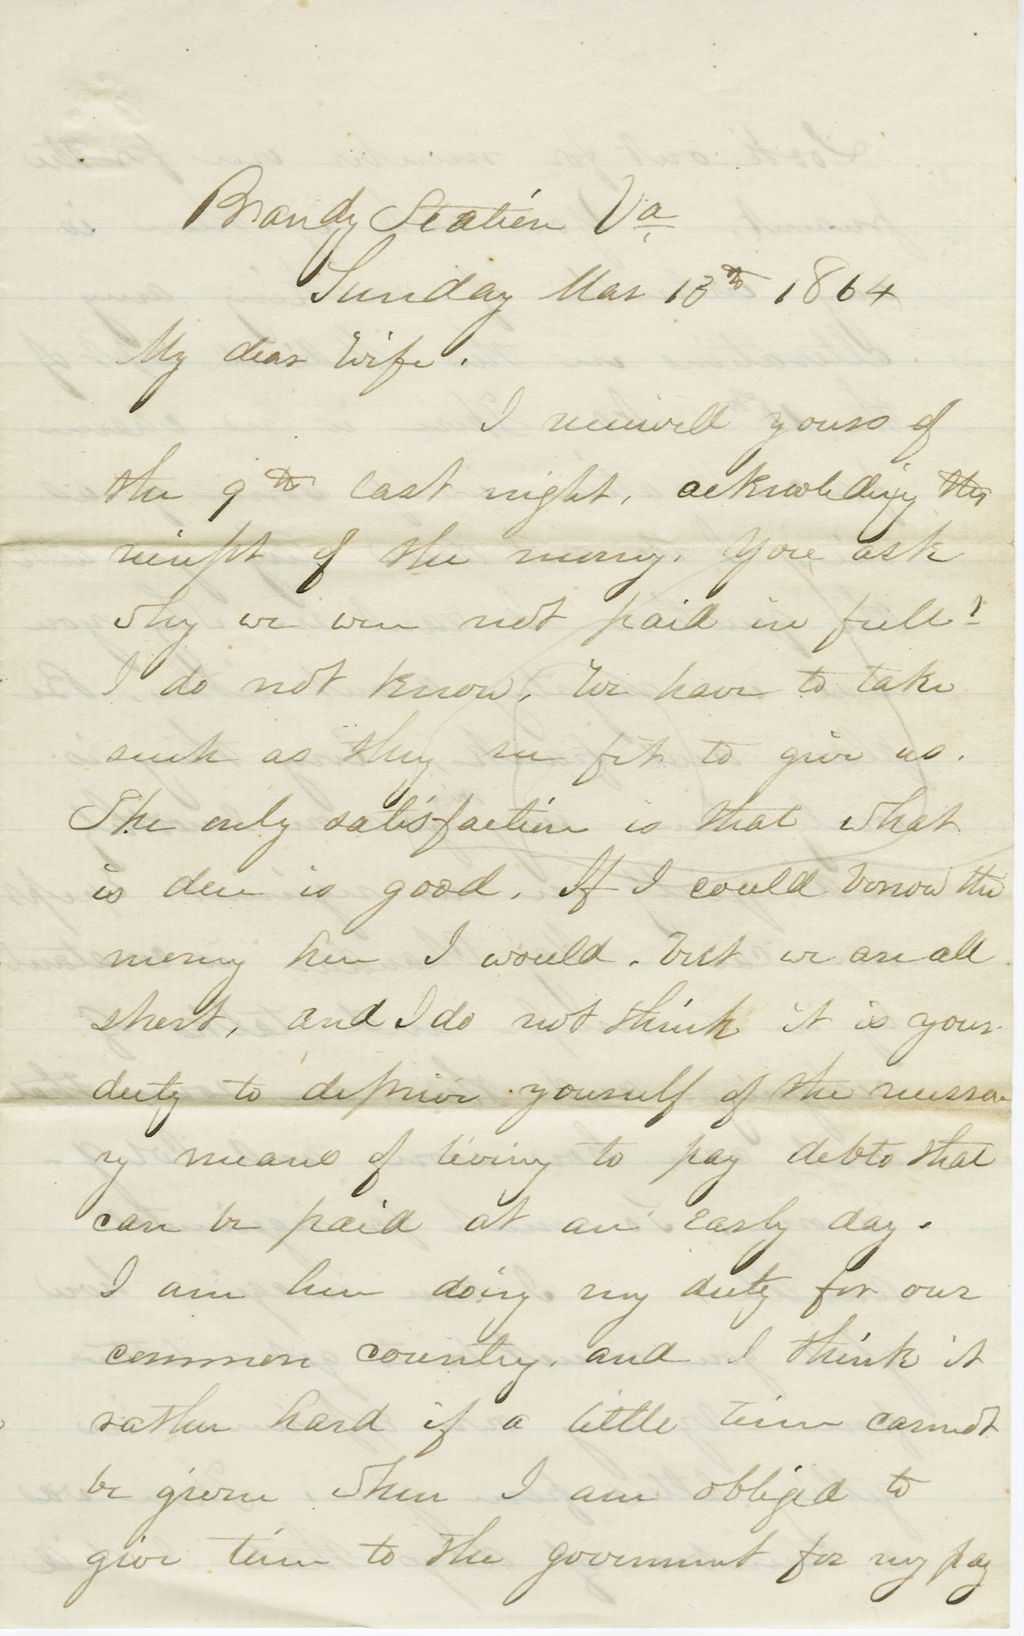 Brandy Station Va
Sunday Mar 13th 1864
My dear Wife.
I received yours of
the 9th last night, acknowledging the
receipt of the money. You ask
why we were not paid in full?
I do not know, We have to take
such as they see fit to give us.
The only satisfaction is that what
is due is good. If I could borrow the
money here I would. but we are all
short, and I do not think it is your
duty to deprive yourself of the necessa
ry means of living to pay debts that
can be paid at an early day.
I am here doing my duty for our
common country. and I think it
rather hard if a little time cannot
be given when I am obliged to
give time to the government for my pay